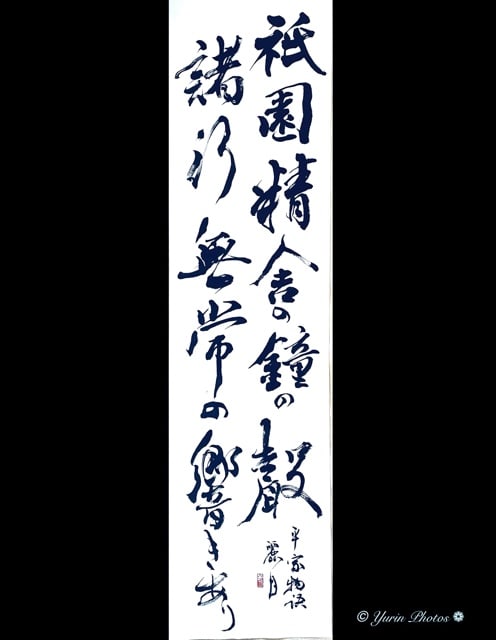 祇園精舎の鐘の聲
諸行無常の響きあり
平家物語
麗月
© Yurin Photos